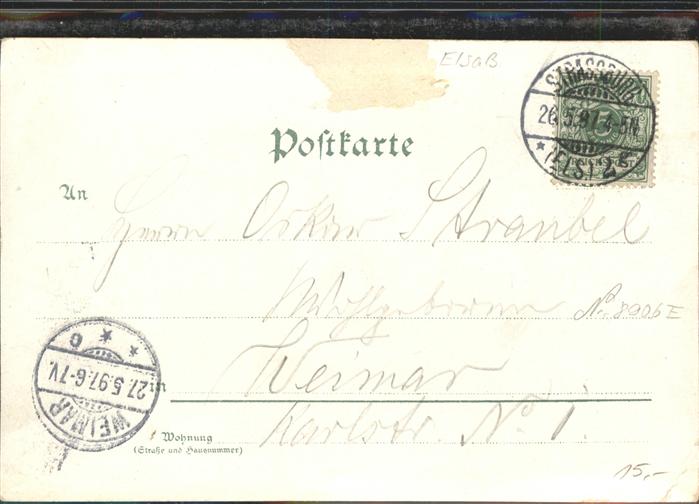 Elsaß
STRASSBURG
26.5.97.4-5N.
* (ELS.) 2 *
Postkarte
An
Herrn Oskar Straubel
Wohlgeboren
No. 8906 E
in Weimar
Karlstr. No. 1.
Wohnung
(Straße und Hausnummer)
WEIMAR
27.5.97.6-7V.
15,-